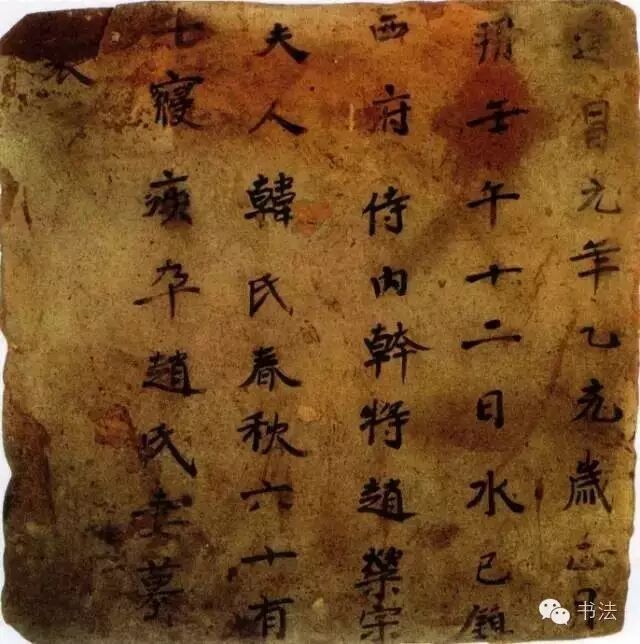 建昌元年乙亥歲正月
朔壬午十二日水巳鎮
西府侍內幹將趙榮宗
夫人韓氏春秋六十有
七寢疾卒趙氏妻墓
表
书法